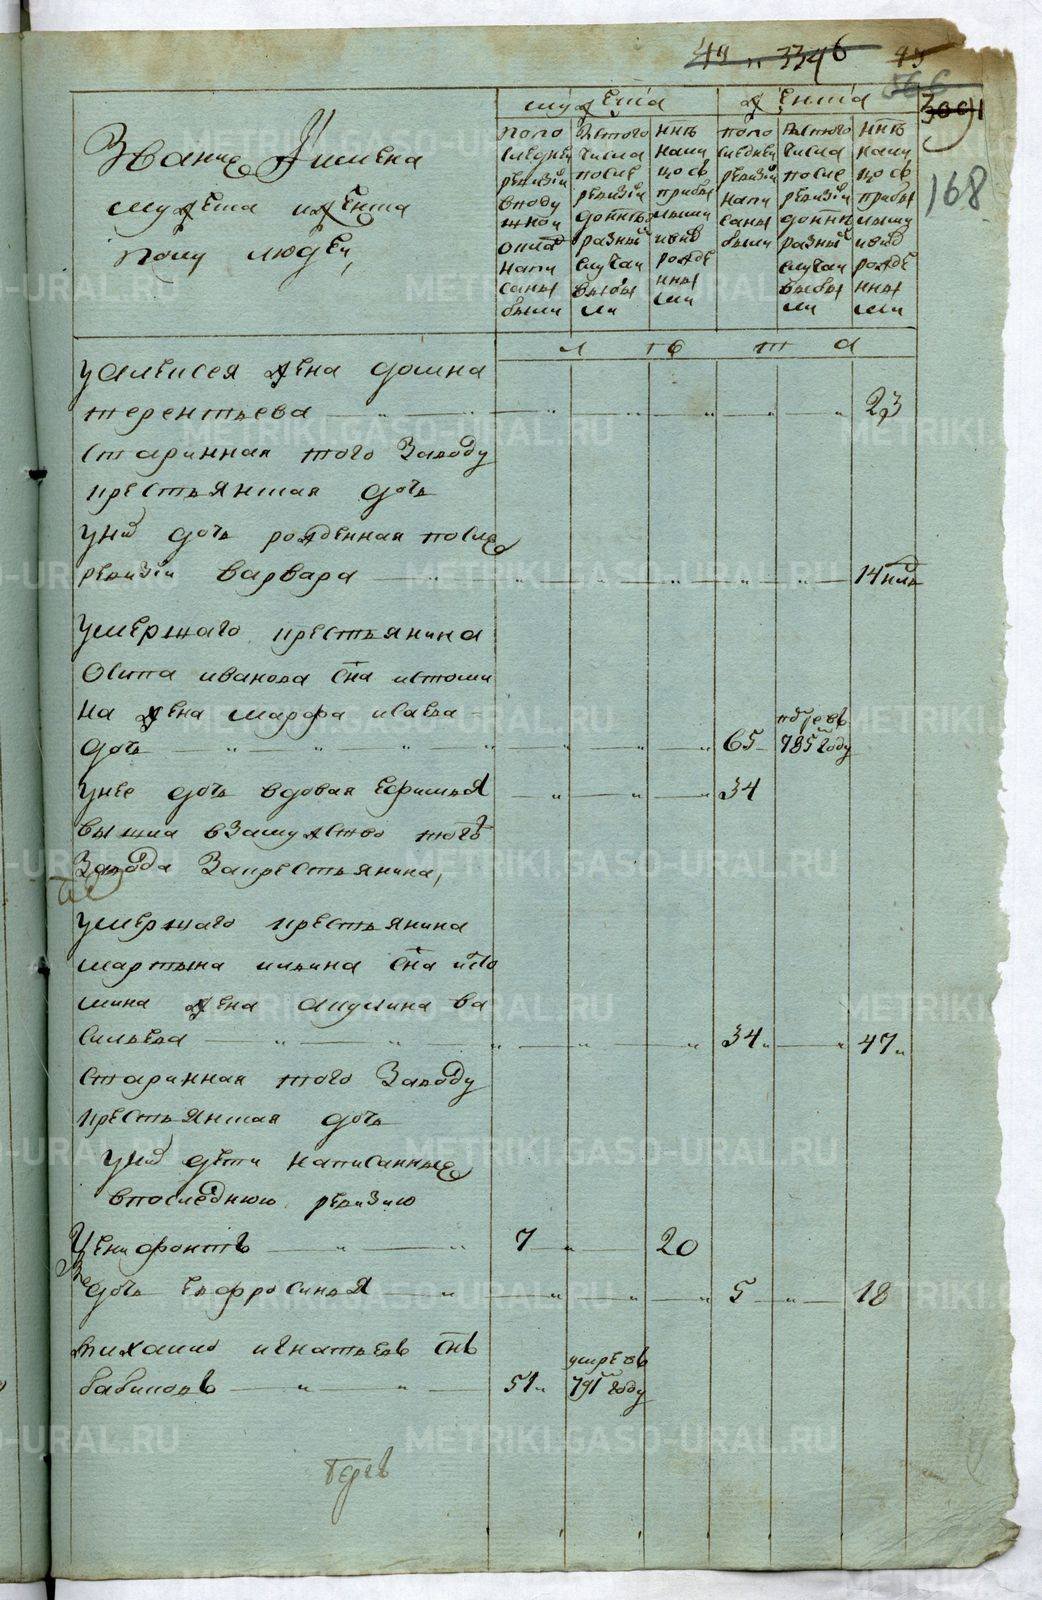 44 и 3346
43
566
3091
168
Звание Уимена
мужеска иженска
полу людей,
мужеска
женска
попо
следней
ревизіи
вподу
шной
окла
напи
саны
были
Изтого
числа
после
ревизіи
доинѣ
разные
случаи
выбы
ли
ннѣ
нали
цо съ
прибы
лыми
ивно
рожде
нны
ми
попо
следней
ревизіи
напи
саны
были
Изтого
числа
после
ревизіи
доннѣ
разные
случаи
выбы
ли
ннѣ
нали
цо съ
прибы
лыми
ивно
рожде
нны
ми
л ѣ т а
уалексея жена домна
терентьева 23
старинная того Заводу
крестьянская дочь
унихъ дочь рожденная после
ревизіи варвара 14 нель
умершаго крестьянина
Осипа иванова сна истоми
на жена марфа исаева
дочь 65 785 году
унее дочь вдовая Ефимья 34
вышла взамужство тогожъ
Завода Закрестьянина,
умершаго крестьянина
мартына ильина сна исто
мина жена акулина ва
сильева 34 47
старинная того Заводу
крестьянская дочь
унихъ дети написанные
впоследнюю ревизию
Ксенофонтъ 7 20
дочь евфросинья 5 18
михаило игнатьевъ снъ
умре въ
бабиновъ 51 791 году